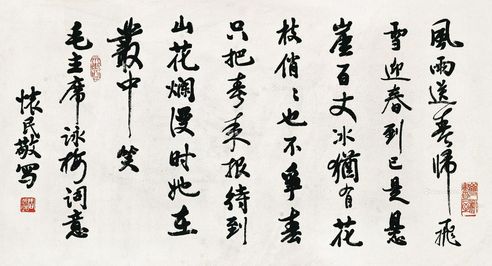 風雨送春帰飛
雪迎春到已是悬
崖百丈冰猶有花
枝俏〻也不争春
只把春来报待到
山花爛漫时她在
叢中笑
毛主席詠梅词意
懷民敬写